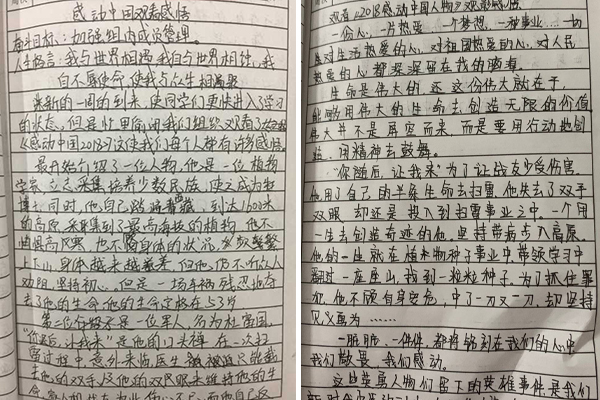 感动中国观看感悟
奋斗目标：加强组内成员管理。
人生格言：我与世界相遇，我自与世界相蚀，我
自不辱使命，使我与众生相遇
崭新的一周的到来，使同学们更快进入了学习
的状态，但是忙里偷闲我们组织观看了
《感动中国2018》这使我们每个人都有许多感悟。
最开始介绍了一位人物，他是一位植物
学家，立志采集培养少数民族，使之成为
博士，同时，他自己踏遍青藏，到达
的高原，采集到了最高海拔的植物，他不
怕狂风寒，也不顾自身的状况，
上下山，身体越来越差，但他，仍不听众人
劝阻，坚持初心，但是一场车祸残忍地夺
去了他的生命，他的生命定格在53岁
第二位介绍不是一位军人，名为杜富国，
“你退后，让我来”是他的口头禅，在一次扫
雷过程中，意外来临，医生只能截
去他的双手及他的双只眼来维持他的生
观看《2018感动中国人物》观影感悟。
一份心，一片热爱……一个梦想，一种事业……一切
是对生活热爱的心，对祖国热爱的心，对人民
热爱的心都深深留在我的脑海。
生命是伟大的，还这份伟大就在于，
能够用伟大的生命去创造无限的价值
伟大并不是凭空而来，而是要用行动她创
造，用精神去鼓舞。
“你随后，让我来”为了让战友少受伤害。
他用了自己的半条生命去扫雷，他失去了双手
双眼，却还是投入到扫雷事业之中。一个用
一生去创造奇迹的他，坚持带病与入高原。
他的一生就在植米物种子事业中，带领学习中
翻过一座座山，找到一粒粒种子。为了抓住罪
犯，他不顾自身安危，中了一刀又一刀，却坚持
见义勇为……
一胆胆，一件件，都将铭刻在我们的心中
我们敬畏，我们感动。
这些英雄人物们留下的英雄事迹是我们